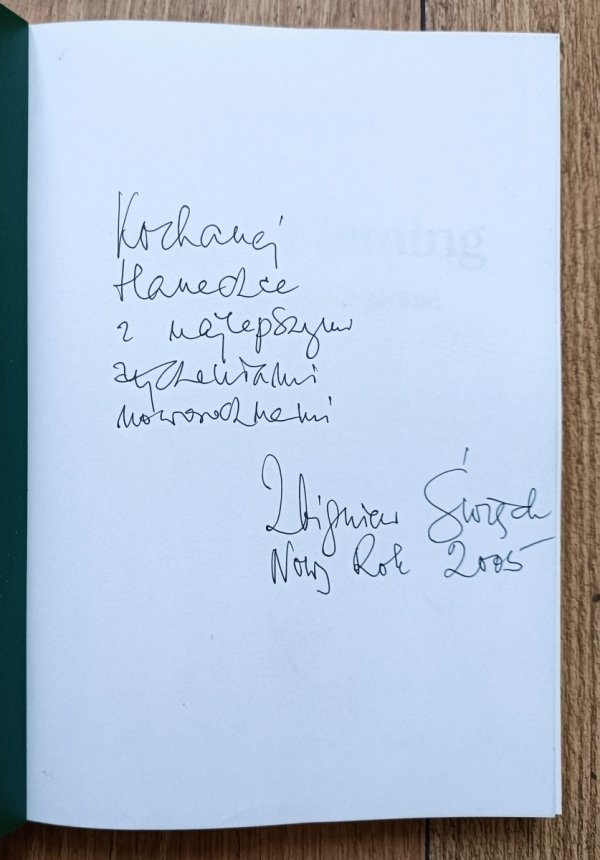 Kochanej
Haneczce
z najlepszymi
życzeniami
noworocznemi
Zbigniew Święch
Nowy Rok 2005